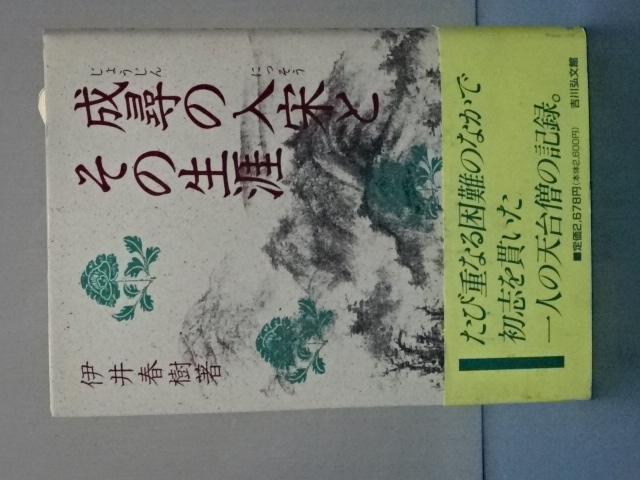 じょうじん にっそう
成尋の入宋と
その生涯
伊井春樹著
たび重なる困難のなかで
初志を貫いた
一人の天台僧の記録。
■定価2,678円(本体2,600円)
吉川弘文館